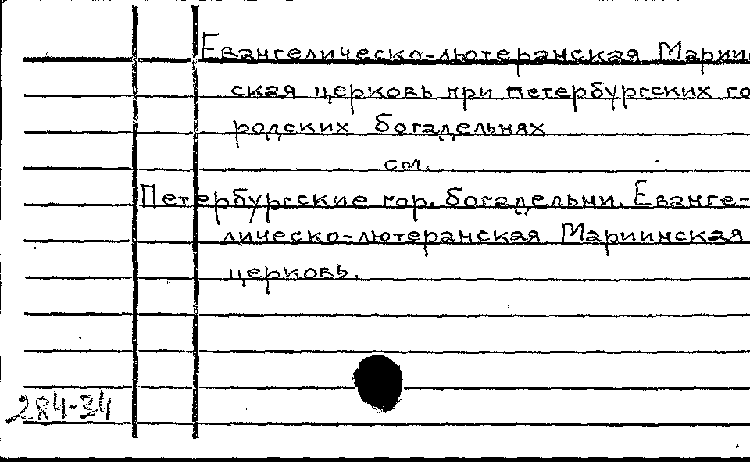 Евангелическо-лютеранская Мариин
ская церковь при петербургских го
родских богадельнях
см.
Петербургские гор. богадельни. Еванге-
лическо-лютеранская Мариинская
церковь.
284-34